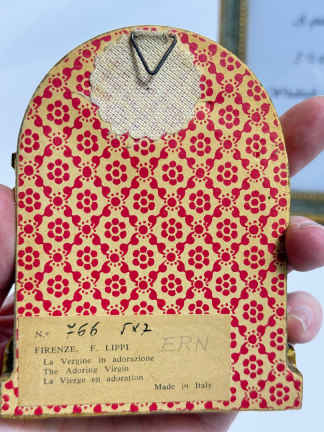 N.º 766 5x7
FIRENZE, F. LIPPI
ERN
La Vergine in adorazione
The Adoring Virgin
La Vierge en adoration
Made in Italy